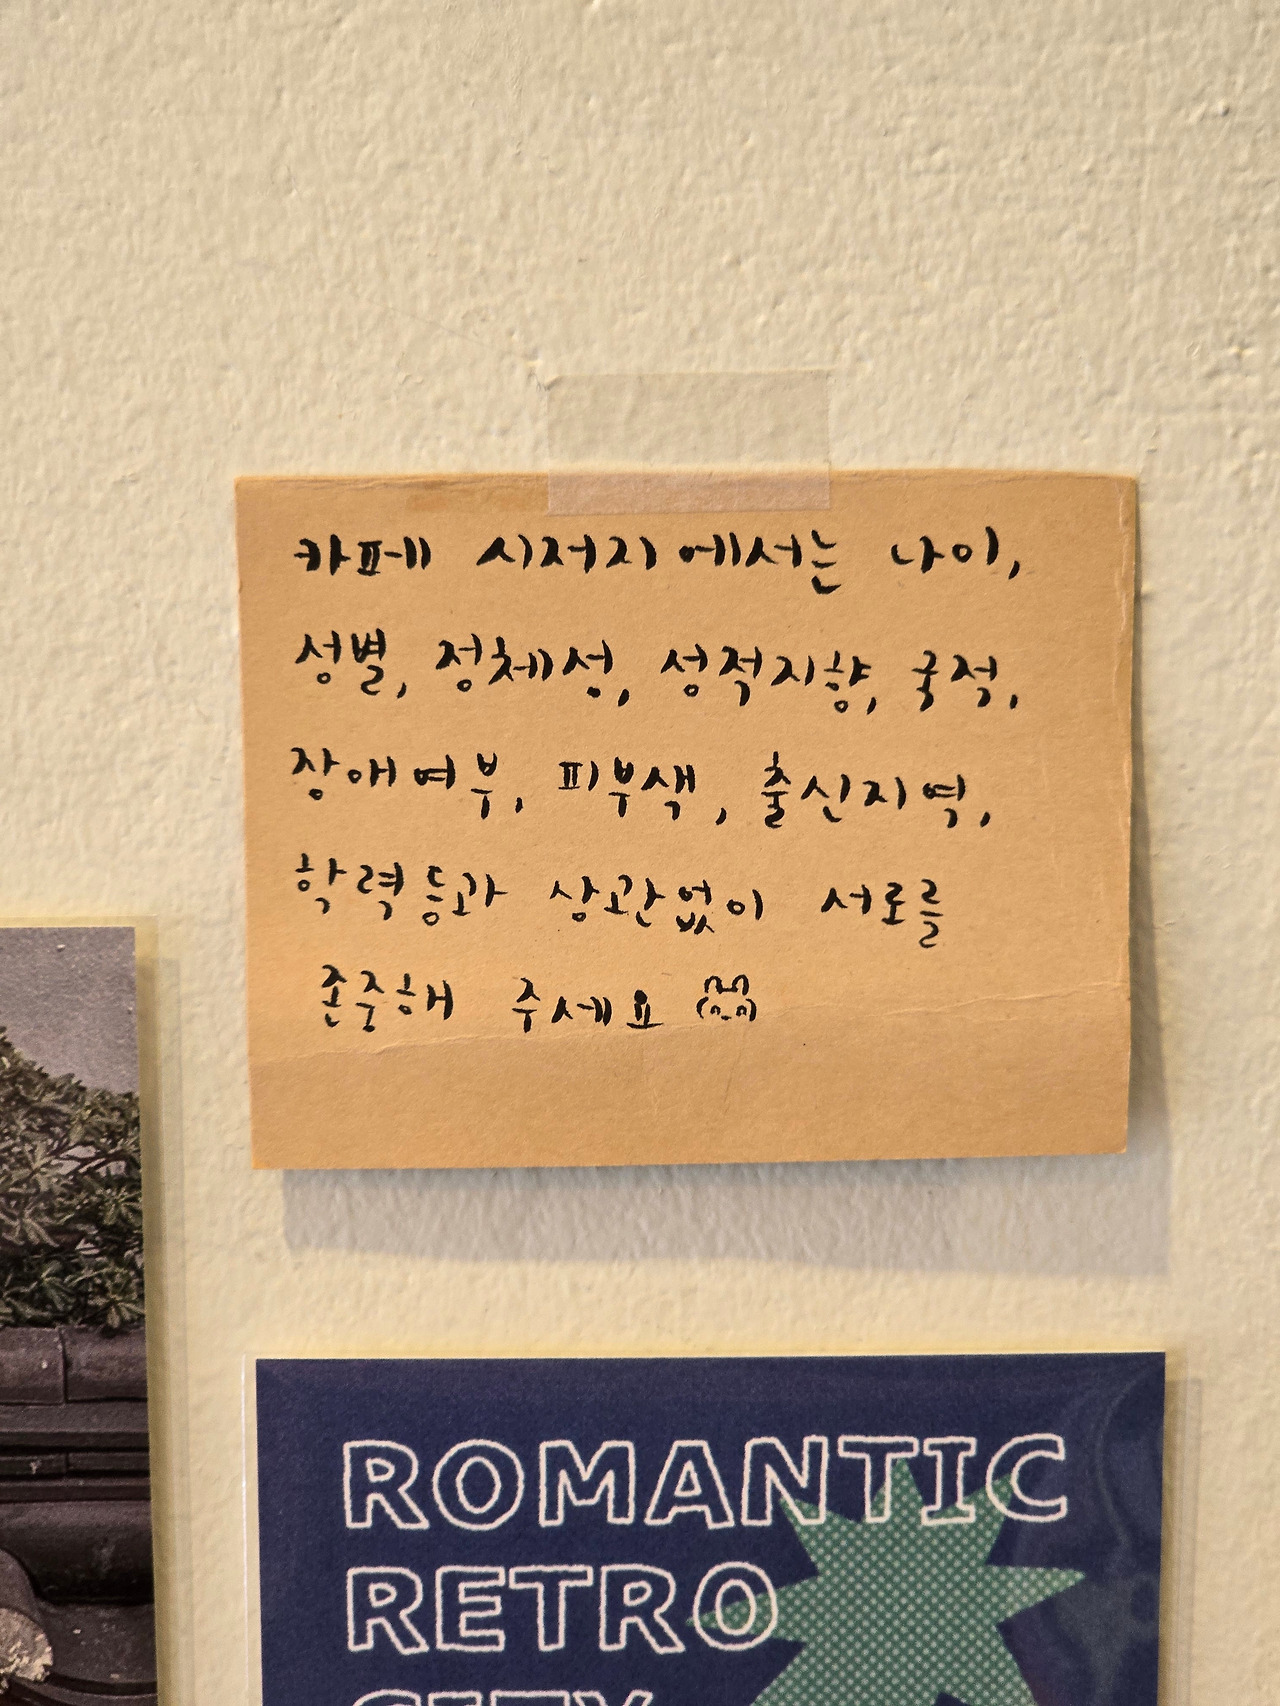 카페 시저지에서는 나이,
성별, 정체성, 성적지향, 국적,
장애여부, 피부색, 출신지역,
학력등과 상관없이 서로를
존중해 주세요
ROMANTIC
RETRO
CITY